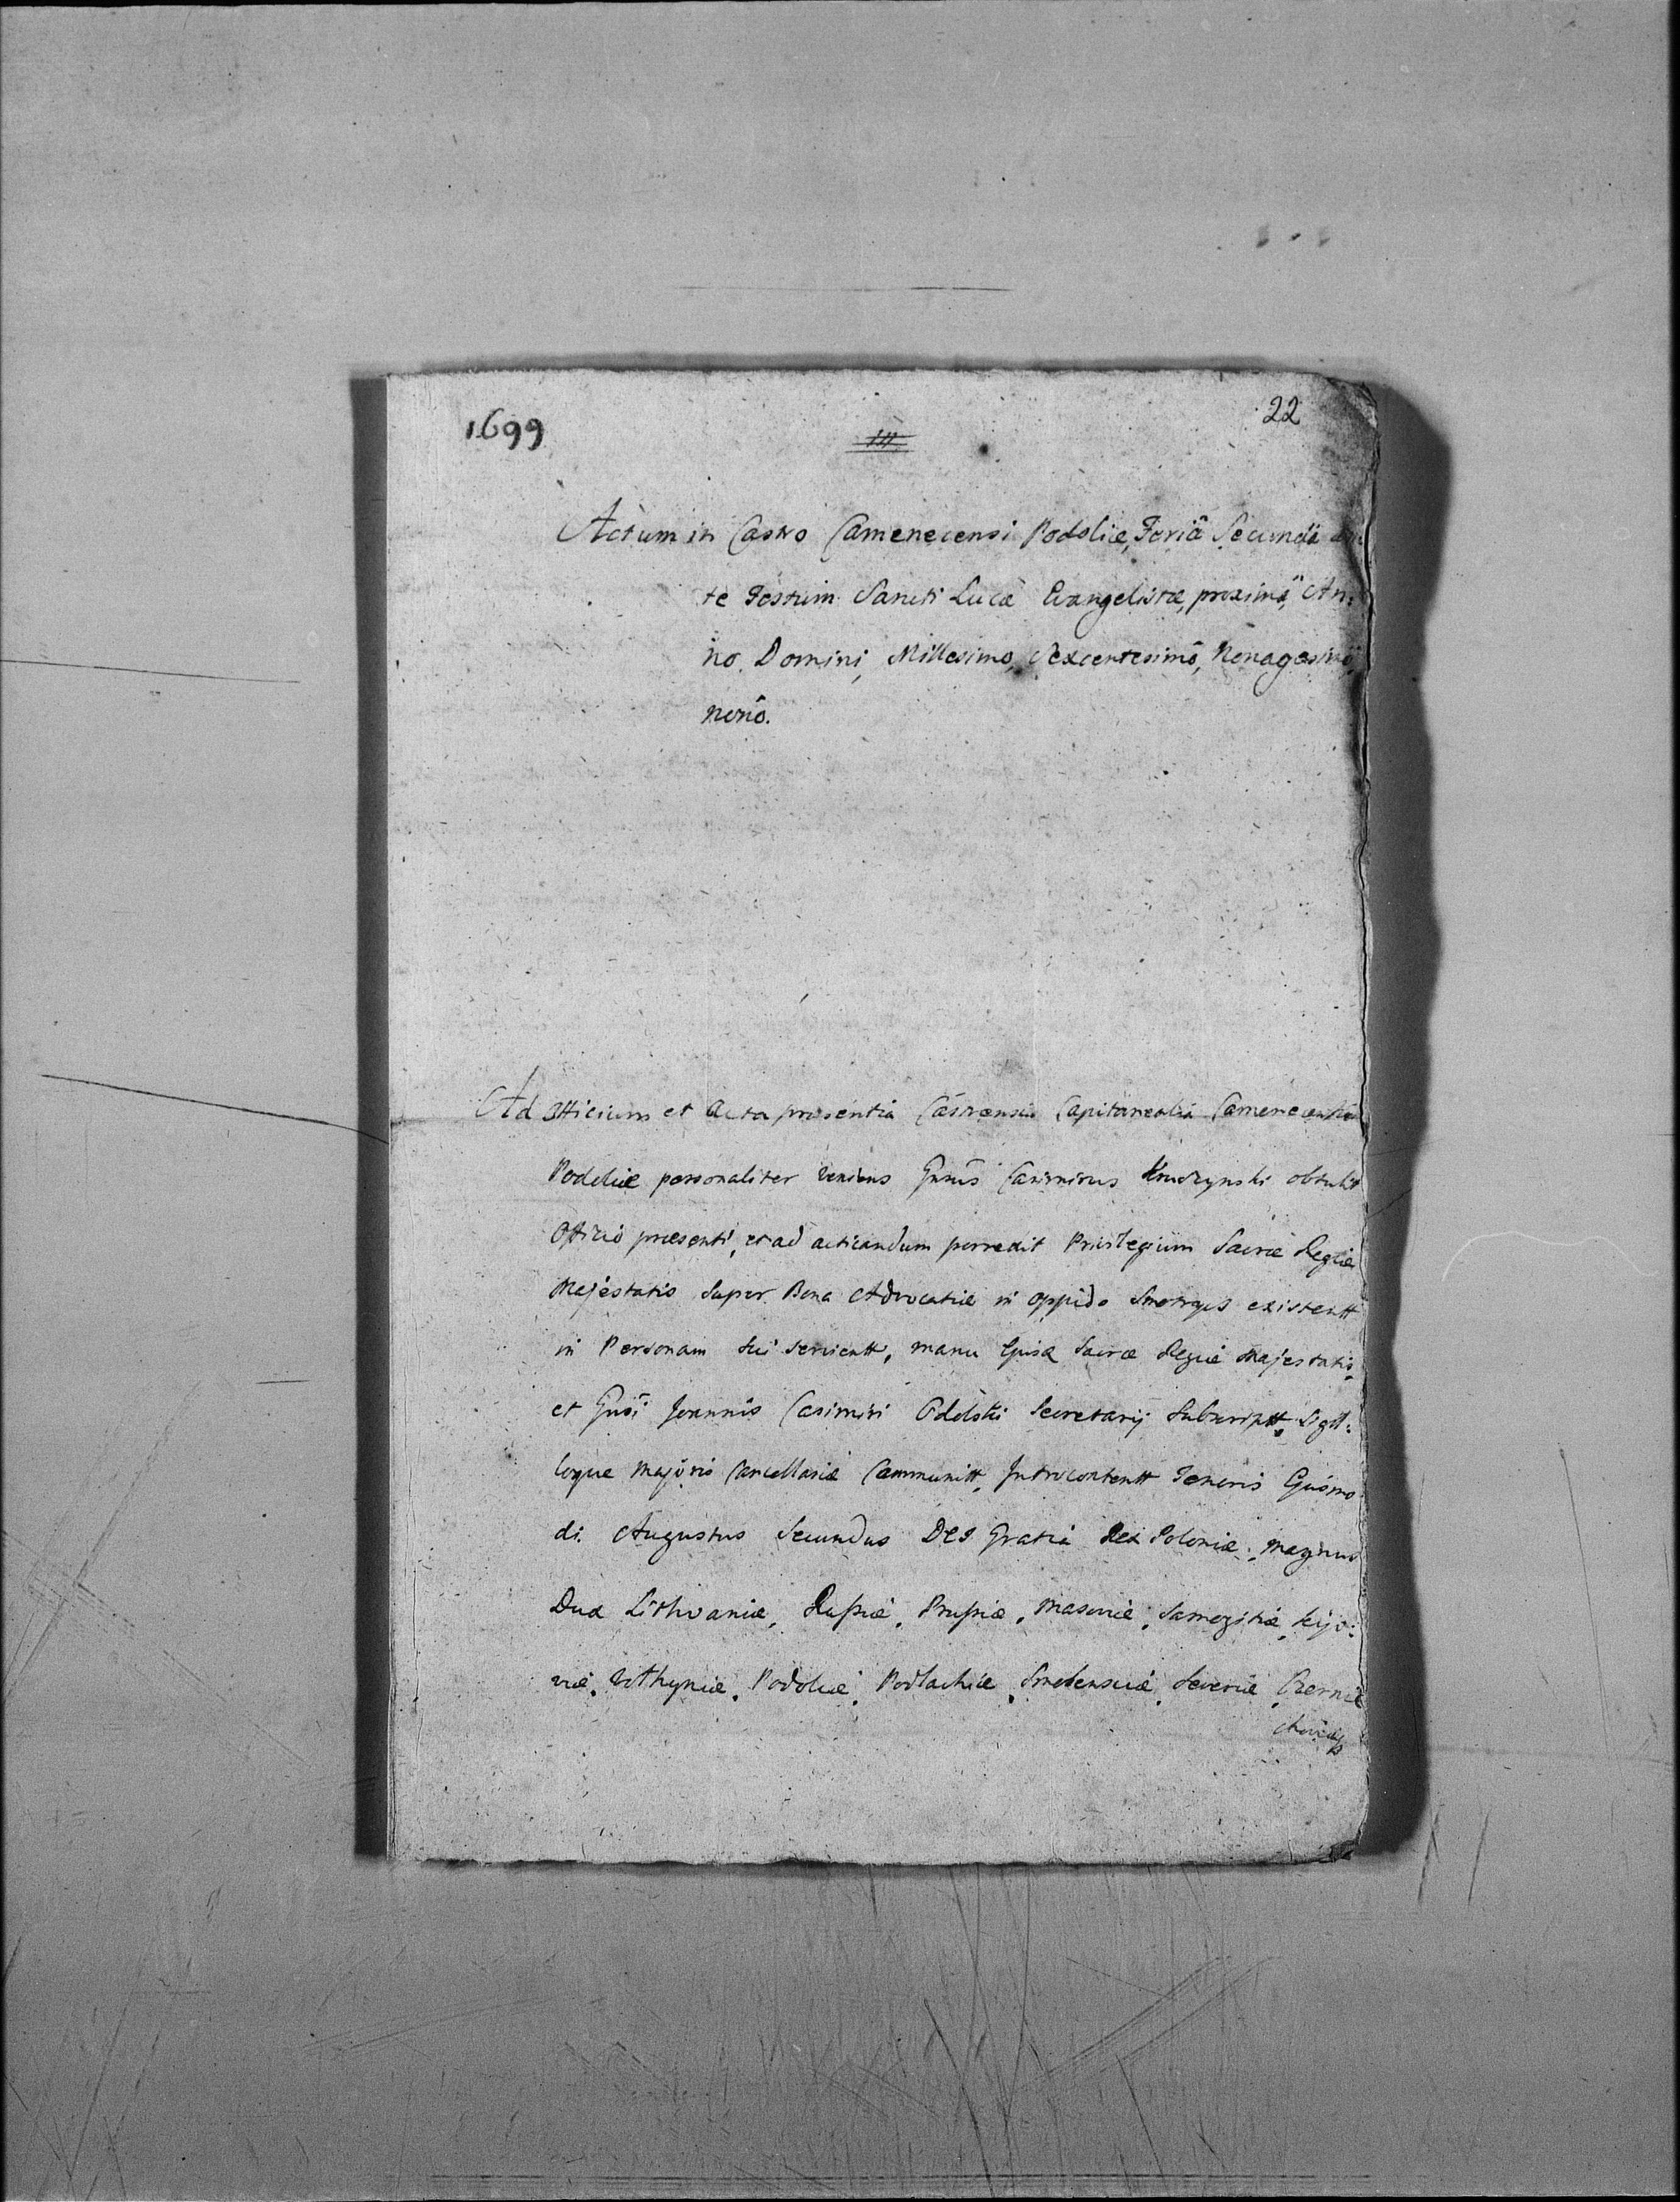 1699
22
Actum in Castro Camenecensi Podoliæ, Feriâ Secundâ an
te Festum Sancti Lucæ Evangelistæ, proximâ, An:
no Domini, Millesimo, Sexcentesimô, Nonagesimô,
nonô.
Ad officium et Acta præsentia Castrensia Capitanealia Camenecensia
Podoliæ personaliter veniens Gnsus Casimirus Kruszynski obtulit
Officio præsenti, et ad acticandum porrexit Privilegium Sacræ Regiæ
Majestatis super Bona Advocatiæ in oppido Smotrycz existentt
in Personam sui servientt, manu Ejusd Sacræ Regiæ Majestatis,
et Gnsi Joannis Casimiri Odolski Secretarij Subscriptt, Sigil:
loque Majoris Cancellariæ Communitt, Introcontentt Tenoris Ejusmo
di. Augustus Secundus DEI Gratiâ Rex Poloniæ, Magnus
Dux Lithvaniæ, Russiæ, Prussiæ, Masoviæ, Samogitiæ, Kijo:
viæ, Volhyniæ, Podoliæ, Podlachiæ, Smolensciæ, Severiæ, Czernie
choviæq